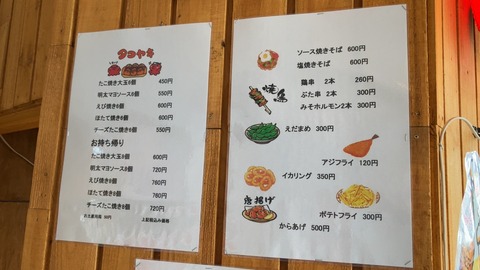 タコヤキ
たこ焼き大玉6個 450円
明太マヨソース6個 550円
えび焼き6個 600円
ほたて焼き6個 600円
チーズたこ焼き6個 550円
お持ち帰り
たこ焼き大玉8個 600円
明太マヨソース8個 720円
えび焼き8個 760円
ほたて焼き8個 760円
チーズたこ焼き8個 720円
上記税込み価格
ソース焼きそば 600円
塩焼きそば 600円
焼鳥
鶏串 2本 260円
ぶた串 2本 300円
みそホルモン2本 300円
えだまめ 300円
アジフライ 120円
イカリング 350円
ポテトフライ 300円
唐揚げ
からあげ 500円